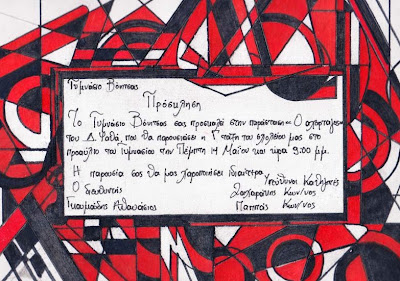 Γυμνάσιο Βόνιτσας
Πρόσκληση
Το Γυμνάσιο Βόνιτσας σας προσκαλεί στην παράσταση « Ο αχόρταγος»
του Δ. Ψαθά, που θα παρουσιάσει η Γ΄ τάξη του σχολείου μας στο
προαύλιο του Γυμνασίου την Πέμπτη 14 Μαΐου και ώρα 9:00 μμ.
Η παρουσία σας θα μας χαροποιήσει ιδιαίτερα
Ο Υπεύθυνοι Καθηγητές
Διευθυντής Ζαχαράκης Κων/νος
Αθανάσιος Παππάς Κων/νος